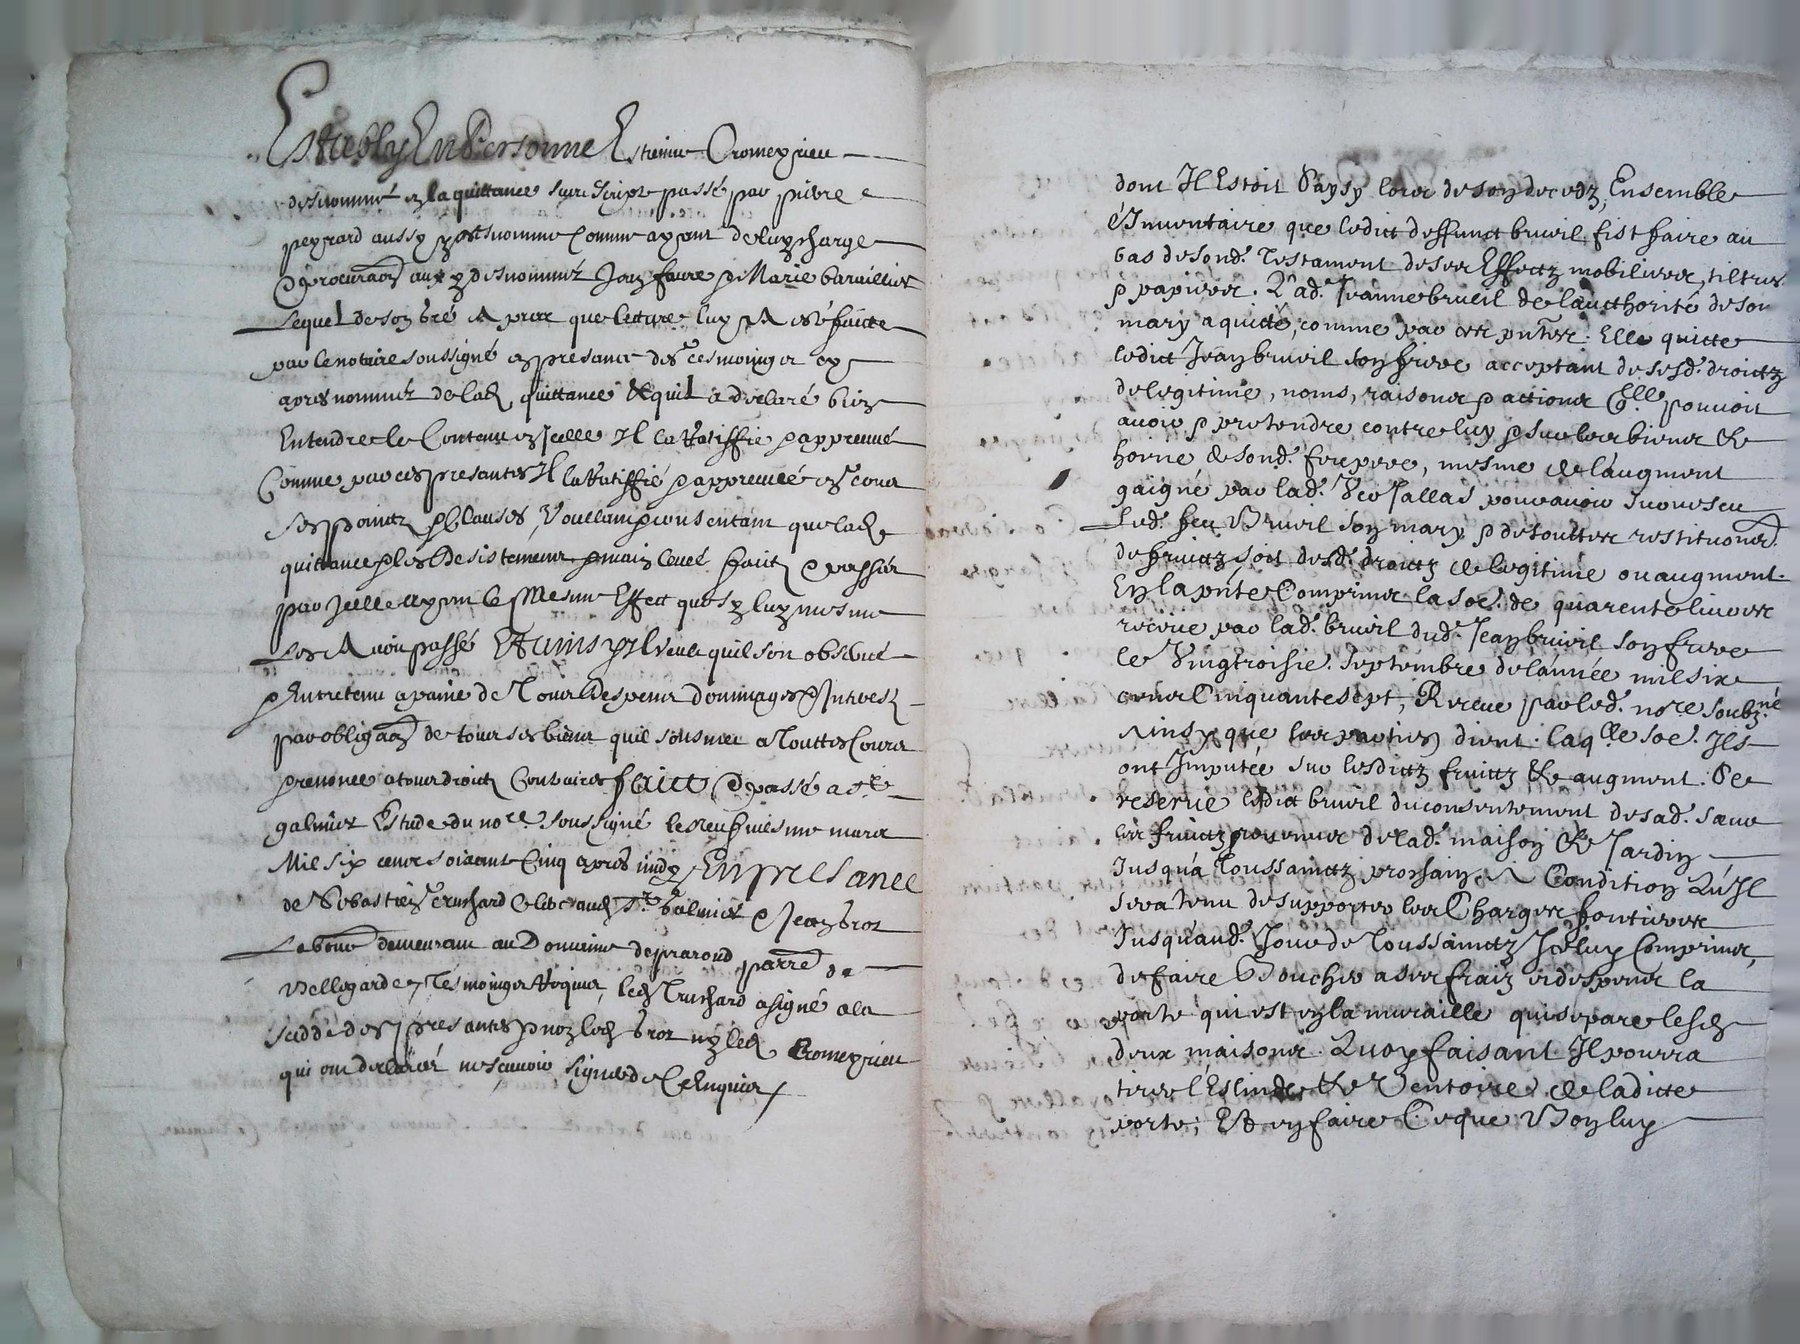 EstablyEnPersonne Estienne Cromeyrieu
desnommé en la quittance surescripte passé par pierre
peyrard aussy desnomme comme ayant deluy charge
& procuraon aux y desnommez Jean faure & Marie baraillier
Lequel de son bré Apres que lecture luy A esté faicte
par le notaire soussigné en presance des tesmoingz
apres nommez de lad quittance & quil a declaré bien
Entendre le Contenu en Jcelle Jl la Ratiffie & appreuue
Comme par ces presantes Jl la Ratiffié & appreuueé en tous
ses pointz & Clauses, Voullant & consentant que lad
quittance & les desistement & main leueé faictz & passées
par Jcelle ayent le Mesme Effect que sy luy mesme
Les Auoit passé Et ainsy Jl veult quil soit obserué
& Entretenu a paine de Tous despens dommages & Jnterestz
par obligaon de tous ses biens quil sousmet a Touttes Cours
& renonce a tous droictz Contraires faict & passé a St
galmier Estude du nore soussigné le Neufuiesme mars
Mil six cens soixante Cinq apres midy En presance
de Sebastien Truchard St galmier & Jean brot
demeurant au Domaine de praroud parre de
Bellegarde, Tesmoingz Requis, led Truchard a signé a la
ceddé des presantes & non led brot ny led Cromeyrieu
qui ont declairé ne scauoir signer de Ce Enquis /
dont Jl Estoit Saysy lors de son decedz, Ensemble
L'Jnuentaire que ledict deffunct brueil fist faire au
bas de sond. Testament de ses Effectz mobiliers, tiltres
& papiers. Lad. Jeanne brueil de laucthorité de son
mary a quicté, comme par ces pntes. Elle quitte
ledict Jean brueil son frere acceptant de sesd. droictz
de legitime, noms, raisons & actions qlle pouuoit
auoir & pretendre contre luy & sur les biens &
hoirie de sond. feu pere, mesme de l'augment
gaigné par lad. Jallas pour auoir suruescu
Led. feu Brueil son mary & de touttes restituons
de fruictz soit desd. droictz de legitime ou augment.
En la pnte Comprins la soe. de quarente liures
recêue par lad. brueil dud. Jean brueil son frere
le Vingtroisie. Septembre de l'année mil six
cens Cinquante sept, Receue par led. nore soubzné
Ainsy que les parties dient. laqlle soe. Jls
ont Jmputée sur lesdictz fruictz & augment. Se
reserue ledict brueil du consentement de sad. sœur
les fruictz prouenus de lad. maison & Jardin
Jusqu'a Toussainctz prochain. A Condition Qu'Jl
sera tenu de supporter les Charges fontieres
Jusqu'aud. Jour de Toussainctz Jceluy Comprins,
de faire Boucher a ses fraiz et despens la
porte qui est en la muraille qui separe lesd
deux maisons. Quoy faisant Jl pourra
tirer l'Eslinde & Ventoire de ladicte
porte; Et en faire Ce que Bon luy